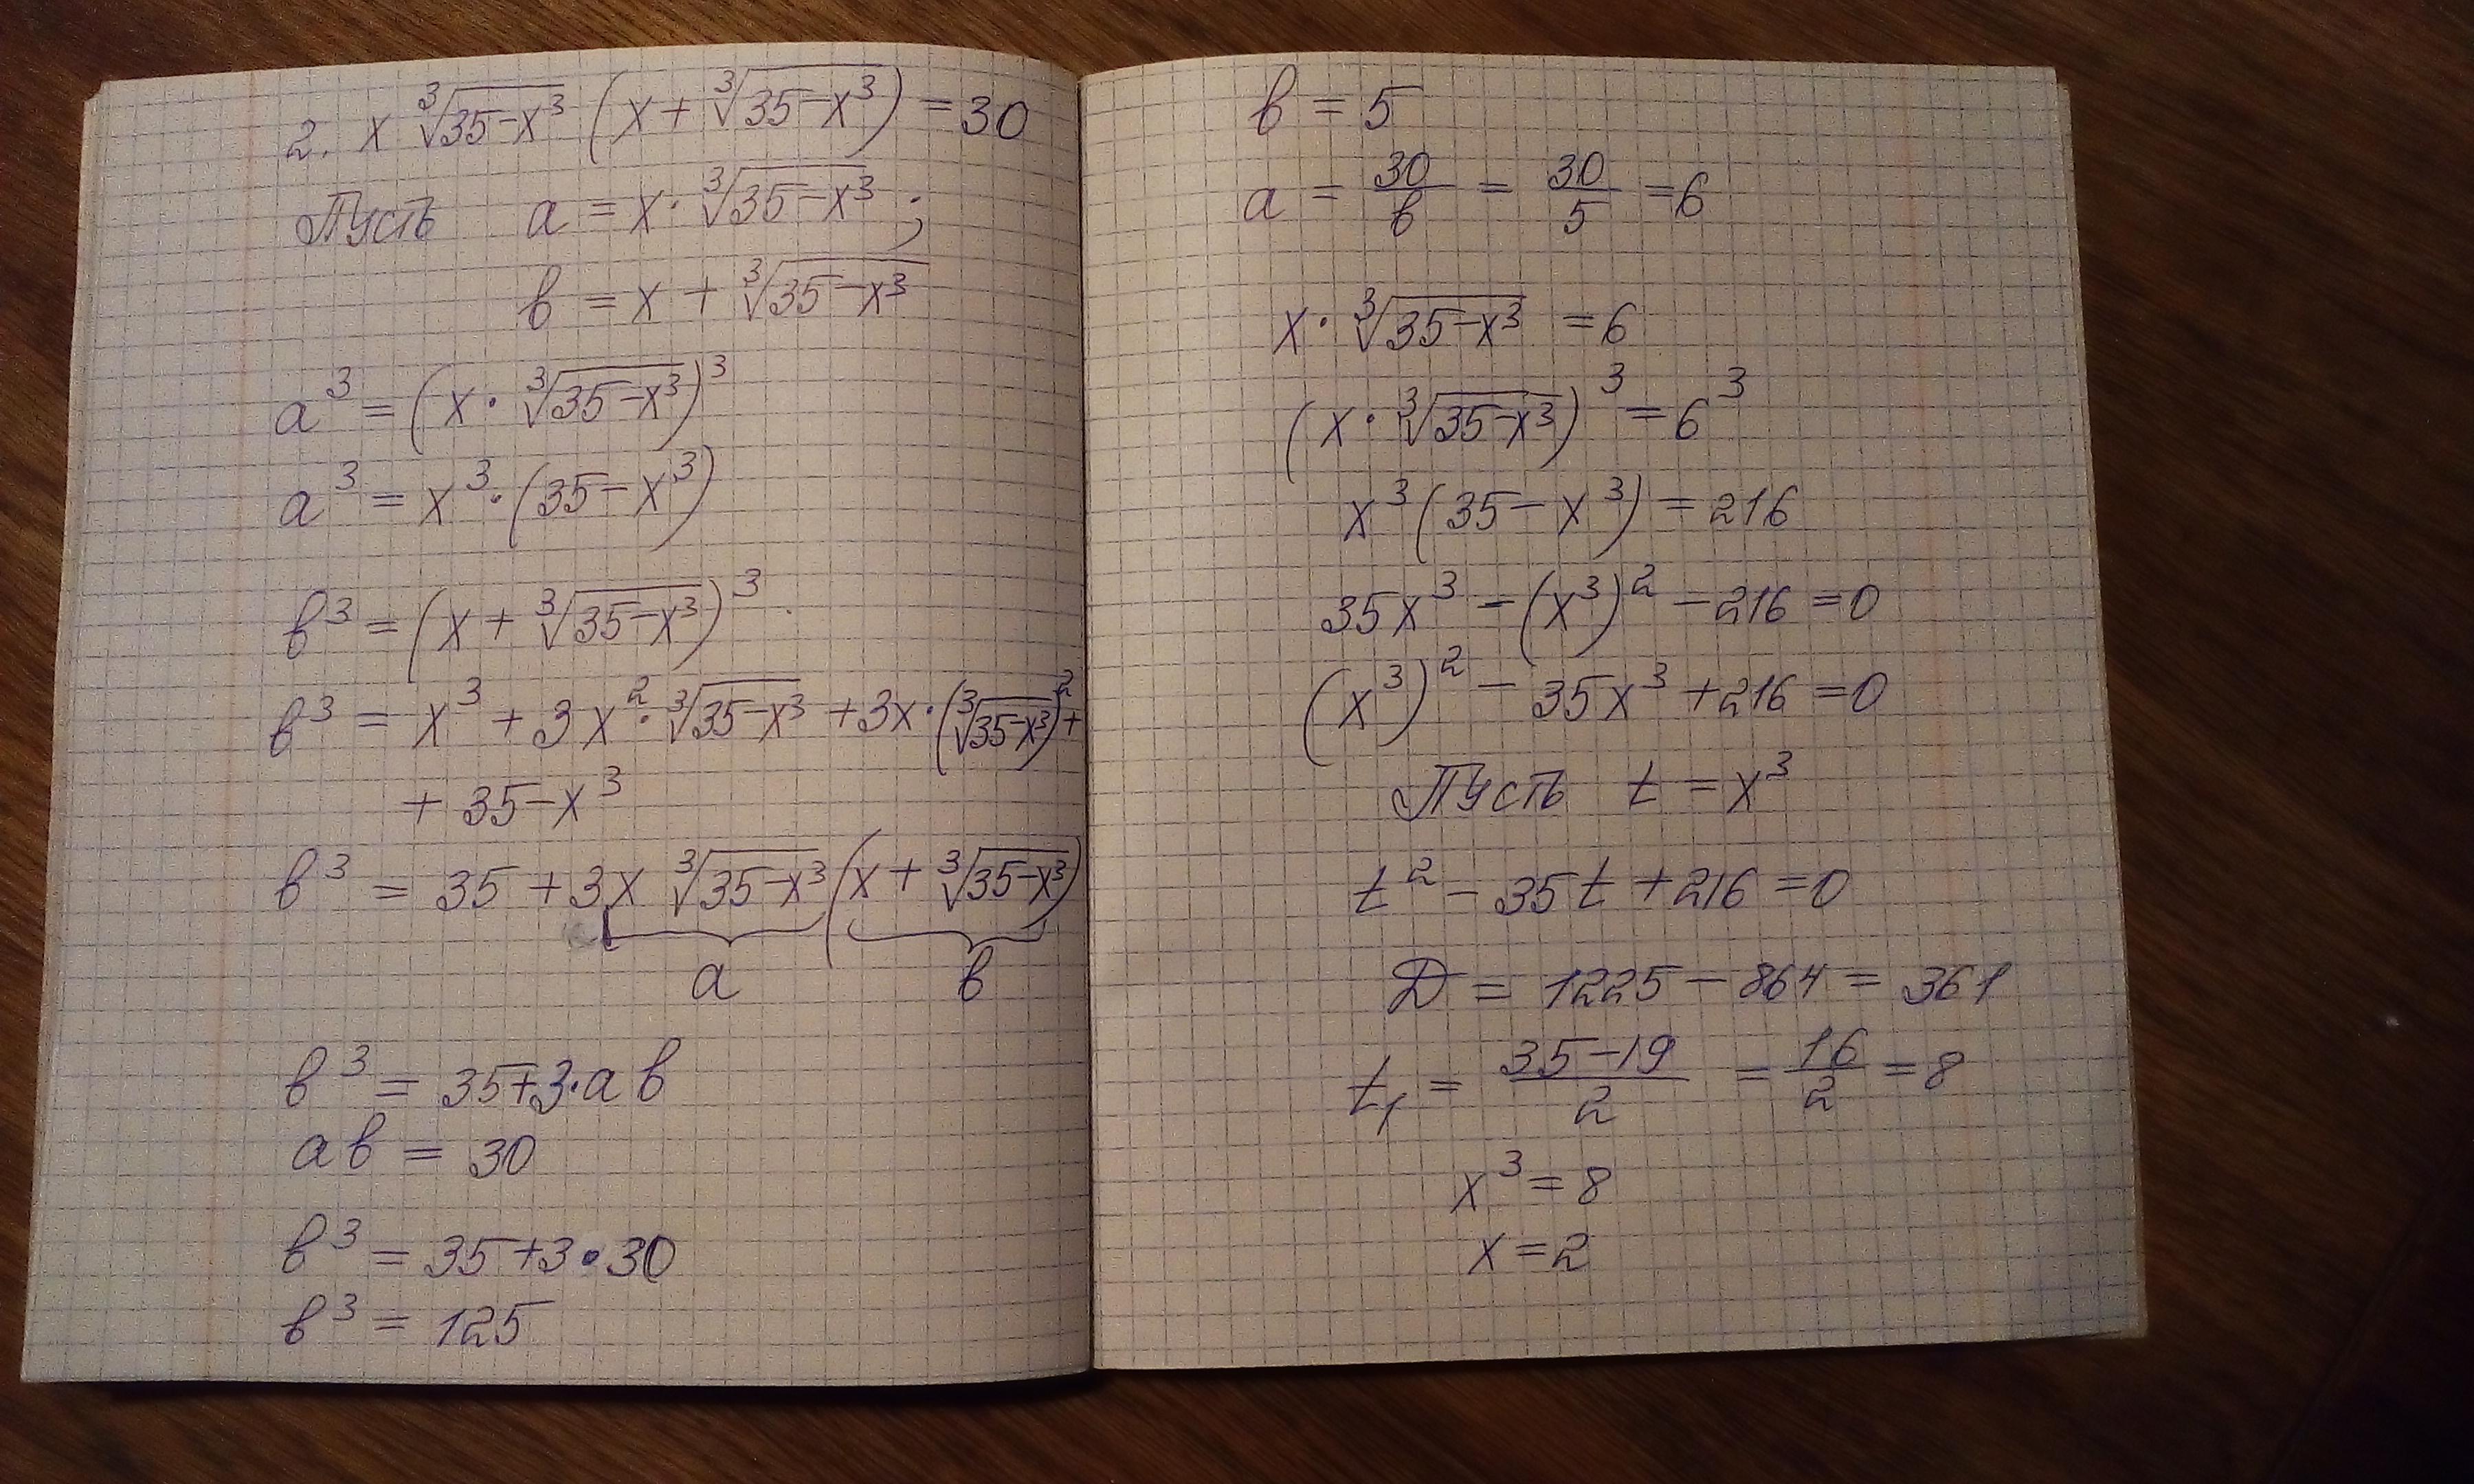 2. x ∛(35-x³) (x + ∛(35-x³)) = 30
Пусть a = x · ∛(35-x³) ;
в = x + ∛(35-x³)
a³ = (x · ∛(35-x³))³
a³ = x³ · (35 - x³)
в³ = (x + ∛(35-x³))³
в³ = x³ + 3x² · ∛(35-x³) + 3x · (∛(35-x³))² +
+ 35-x³
в³ = 35 + 3x ∛(35-x³) (x + ∛(35-x³))
a в
в³ = 35+3·aв
aв = 30
в³ = 35+3·30
в³ = 125
в = 5
a = 30/в = 30/5 = 6
x · ∛(35-x³) = 6
(x · ∛(35-x³))³ = 6³
x³(35 - x³) = 216
35x³ - (x³)² - 216 = 0
(x³)² - 35x³ + 216 = 0
Пусть t = x³
t² - 35t + 216 = 0
Д = 1225 - 864 = 361
t₁ = (35-19)/2 = 16/2 = 8
x³ = 8
x = 2